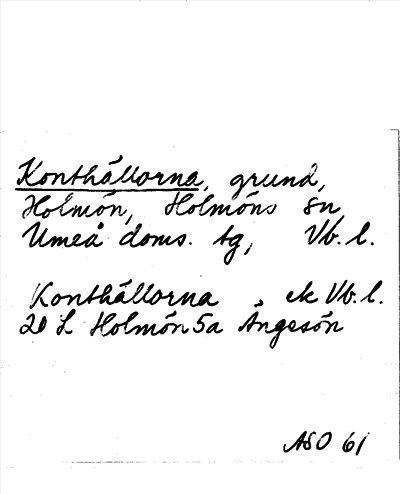 Konthällorna, grund,
Holmön, Holmöns sn
Umeå doms. tg, Vb. l.
Konthällorna, ek Vb. l.
20 L Holmön 5a Ängesön
ASO 61